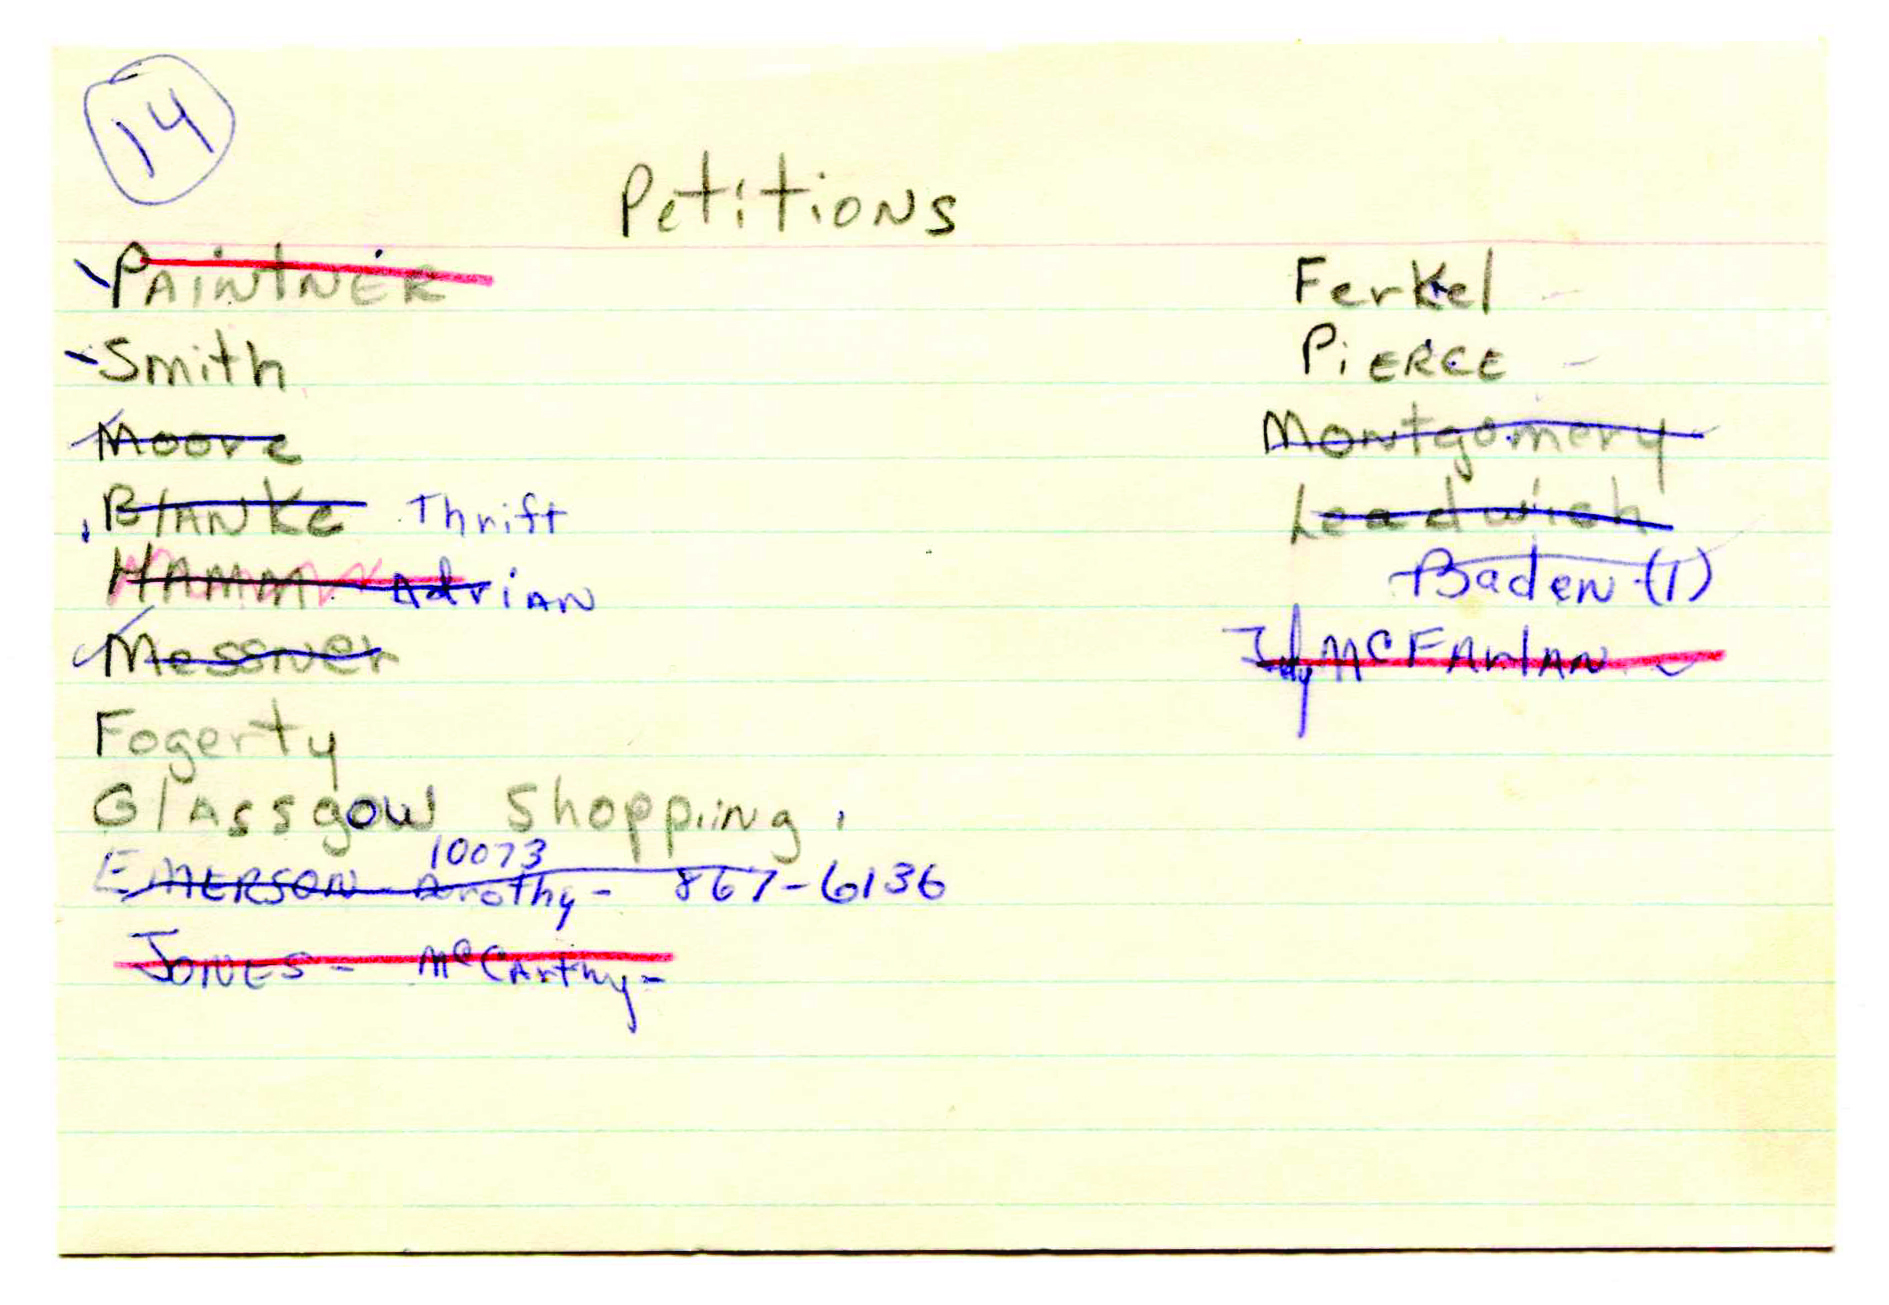 14
Petitions
PAINTNER
Smith
Moore
BlANKe Thrift
HAMM Adrian
Messner
Fogerty
GlAssgow Shopping.
10073
EMERSON - Dorothy - 867-6136
JONES - McCArthy -
Ferkel -
PiERCE -
Montgomery
Leadwich
Baden - (1)
Judy McFArlAN